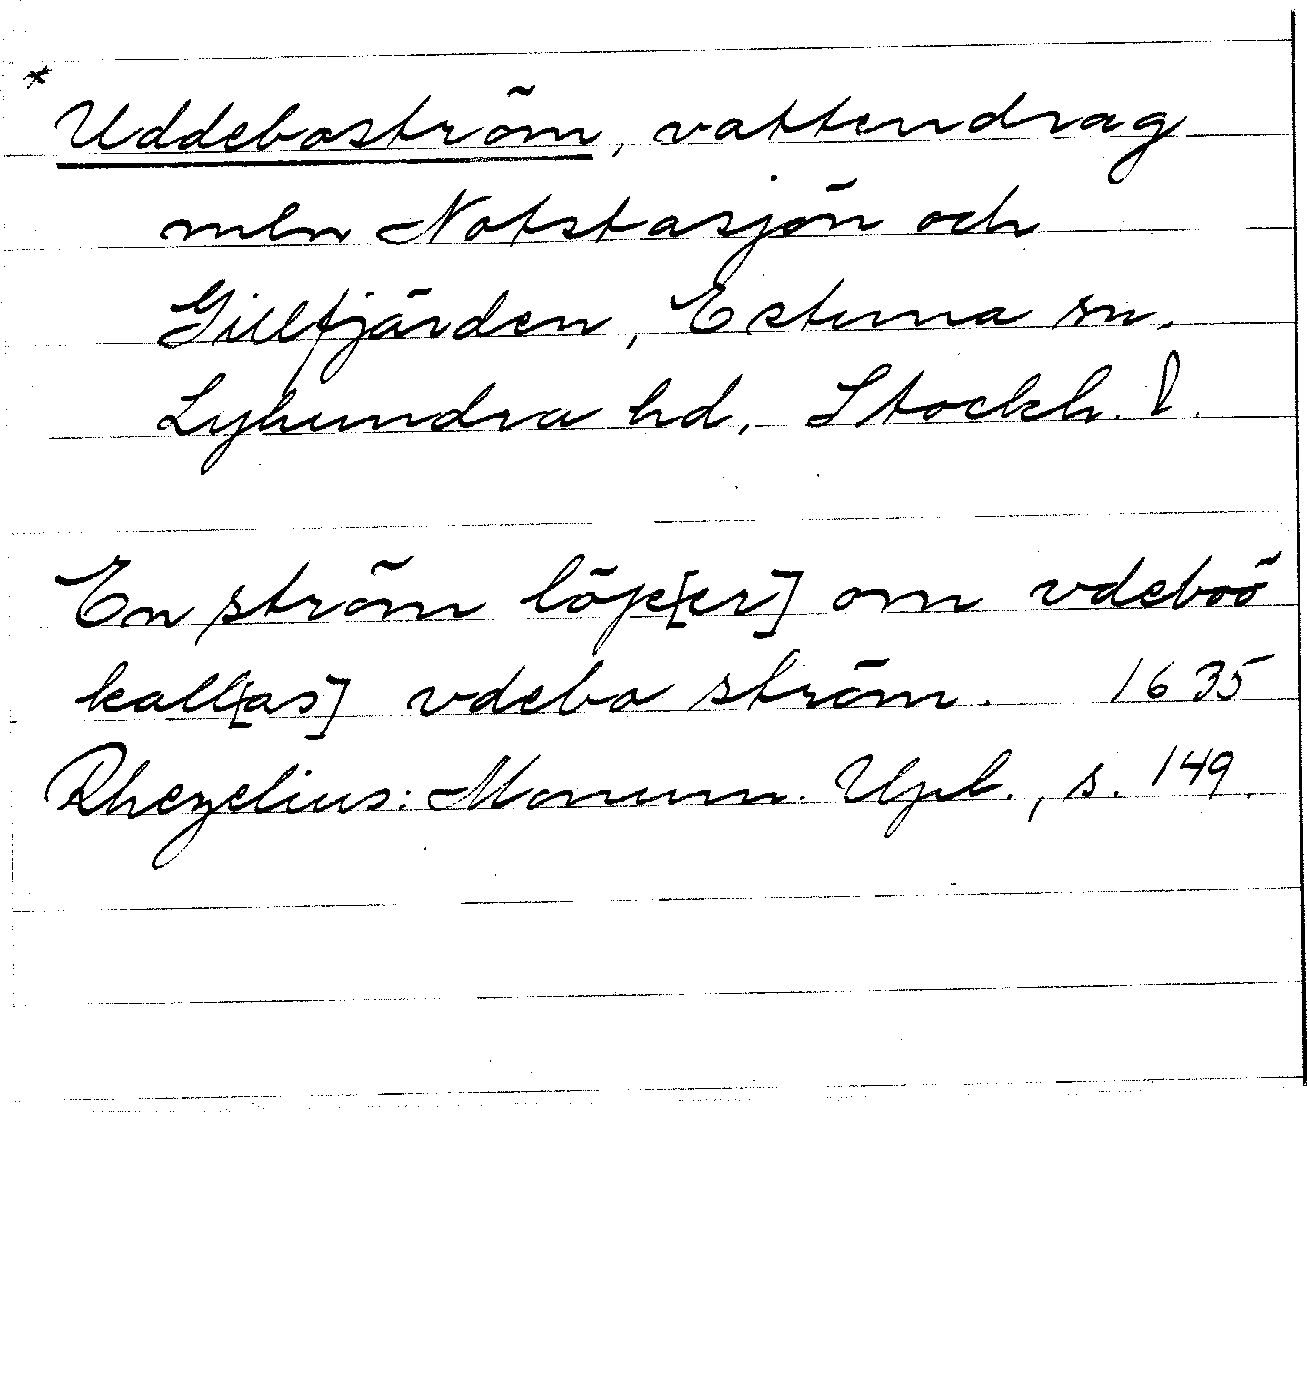 * Uddeboström, vattendrag
mln Notstasjön och
Gillfjärden, Estuna sn.
Lyhundra hd, Stockh. l.
En ström löp[er] om vdeboö
kall[as] vdebo ström. 1635
Rhezelius: Monum. Upl., s. 149.